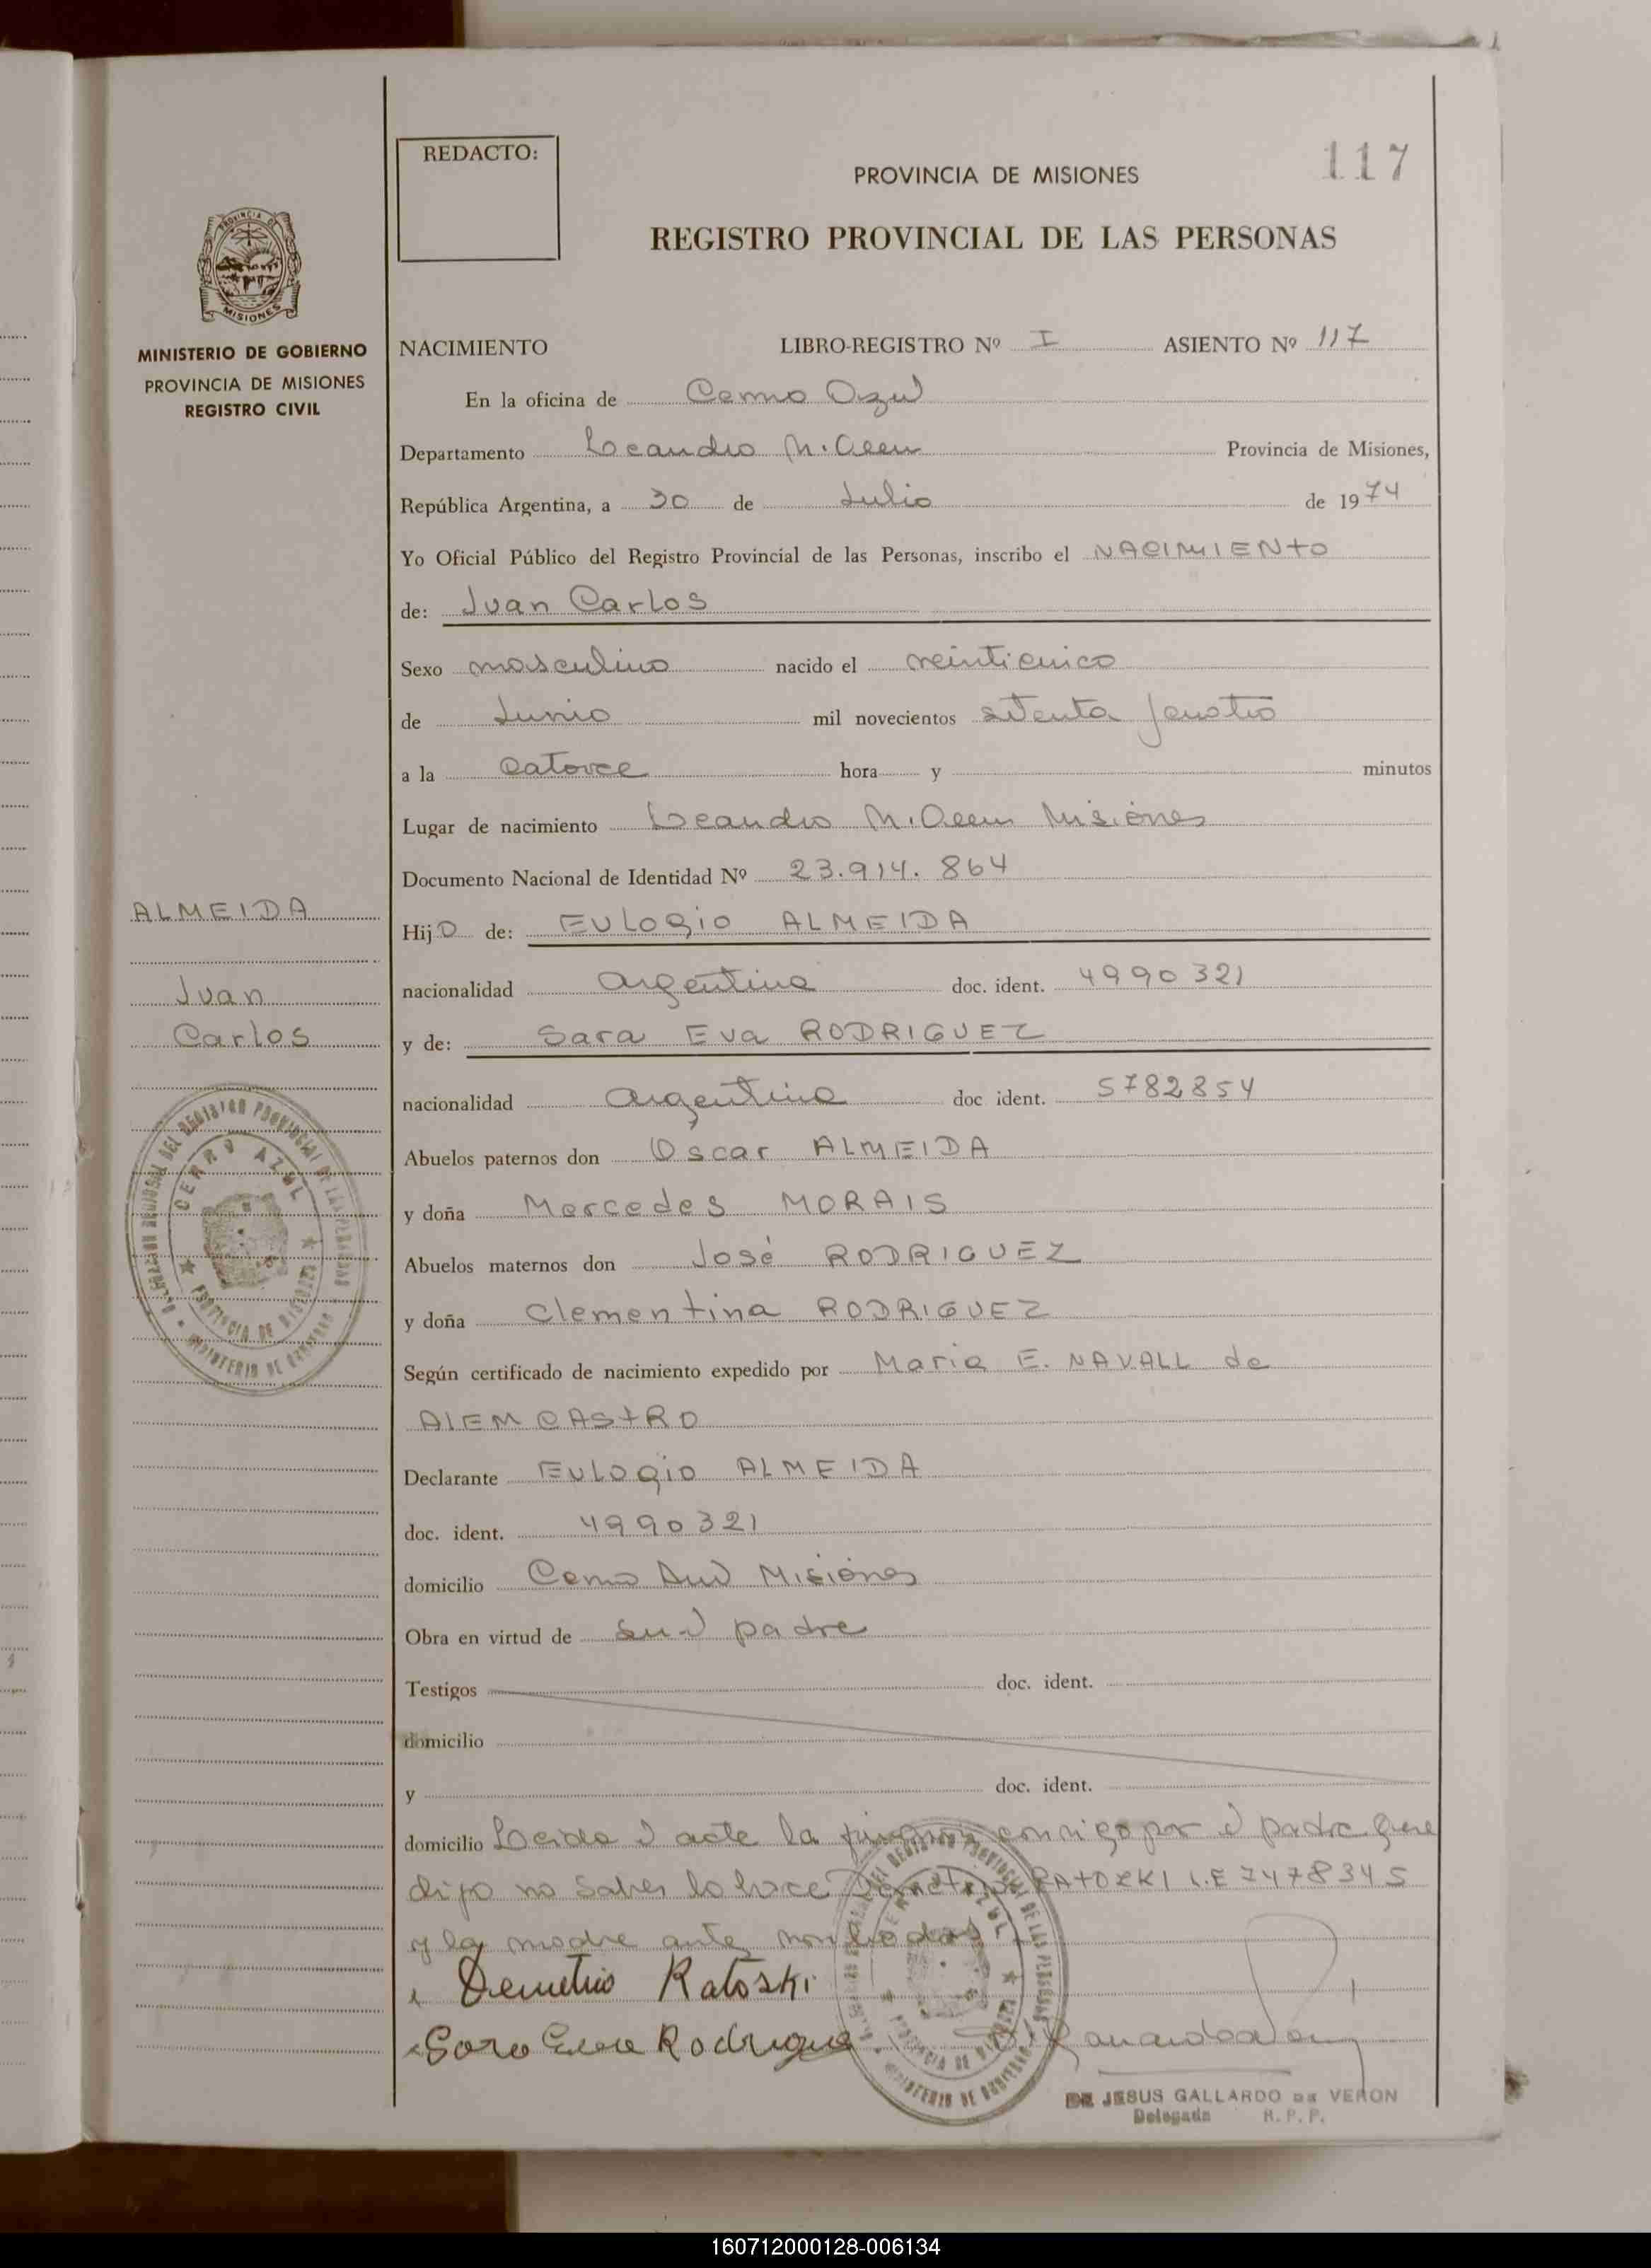 117
REDACTO:
PROVINCIA DE MISIONES
REGISTRO PROVINCIAL DE LAS PERSONAS
PROVINCIA DE
MISIONES
MINISTERIO DE GOBIERNO
PROVINCIA DE MISIONES
REGISTRO CIVIL
NACIMIENTO LIBRO-REGISTRO Nº I ASIENTO Nº 117
En la oficina de Cerro Azul
Departamento Leandro N. Alem Provincia de Misiones,
República Argentina, a 30 de Julio de 1974
Yo Oficial Público del Registro Provincial de las Personas, inscribo el NACIMIENTO
de: Juan Carlos
Sexo masculino nacido el veinticinco
de Junio mil novecientos setenta y cuatro
a la catorce hora y minutos
Lugar de nacimiento Leandro N. Alem Misiones
Documento Nacional de Identidad Nº 23.914.864
ALMEIDA
Juan
Carlos
Hijo de: EULOGIO ALMEIDA
nacionalidad argentina doc. ident. 4990321
y de: Sara Eva RODRIGUEZ
nacionalidad argentina doc ident. 5782854
Abuelos paternos don Oscar ALMEIDA
y doña Mercedes MORAIS
Abuelos maternos don José RODRIGUEZ
y doña Clementina RODRIGUEZ
Según certificado de nacimiento expedido por Maria E. NAVALL de
ALEMCASTRO
Declarante EULOGIO ALMEIDA
doc. ident. 4990321
domicilio Cerro Azul Misiones
Obra en virtud de ser padre
Testigos doc. ident.
domicilio
y doc. ident.
domicilio Leida el acta la firma conmigo por el padre que
dijo no saber lo hace Demetrio RATOZKI L.E 7478345
y la madre ante
Demetrio Ratoski
Sara Eva Rodrigue
CERRO AZUL
PROVINCIA DE MISIONES
DE JESUS GALLARDO DE VERON
Delegada R. P. P.
160712000128-006134